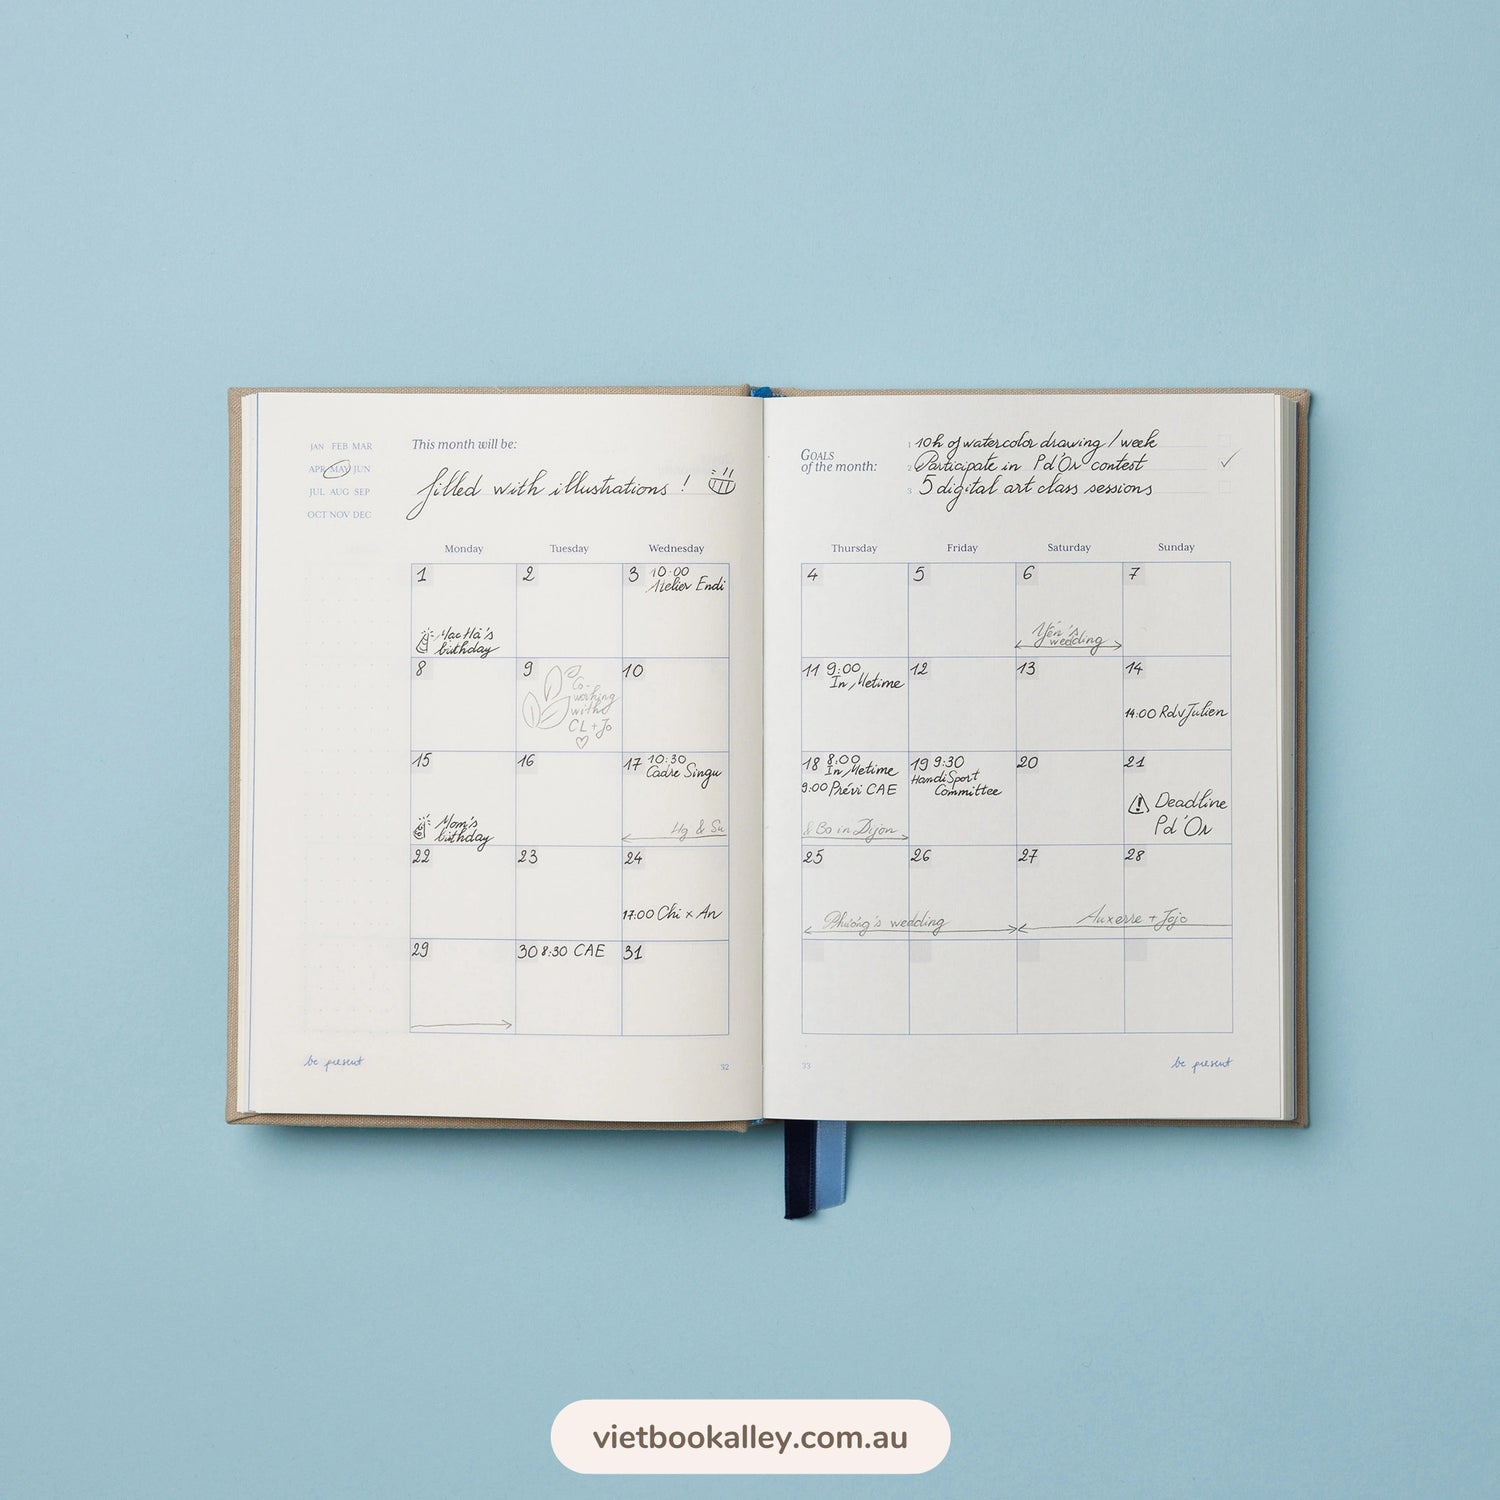 JAN FEB MAR
APR MAY JUN
JUL AUG SEP
OCT NOV DEC
This month will be:
filled with illustrations !
Monday
Tuesday
Wednesday
1
Hà's
birthday
2
3 10:00
Atelier Endi
8
9
Co-
working
with
CL + Jo
10
15
Mom's
birthday
16
17 10:30
Cadre Singu
Hg & Su
22
23
24
17:00 Chi x An
29
30 8:30 CAE
31
be present
32
GOALS
of the month:
1 10h of watercolor drawing / week
2 Participate in Pd'Or contest
3 5 digital art class sessions
Thursday
Friday
Saturday
Sunday
4
5
6
Yến's
wedding
7
11 9:00
In Metime
12
13
14
14:00 Rdv Julien
18 8:00
In Metime
9:00 Prévi CAE
& Bo in Dijon
19 9:30
HandiSport
Committee
20
21
Deadline
Pd'Or
25
26
Phương's wedding
27
28
Auxerre + Jojo
33
be present
vietbookalley.com.au